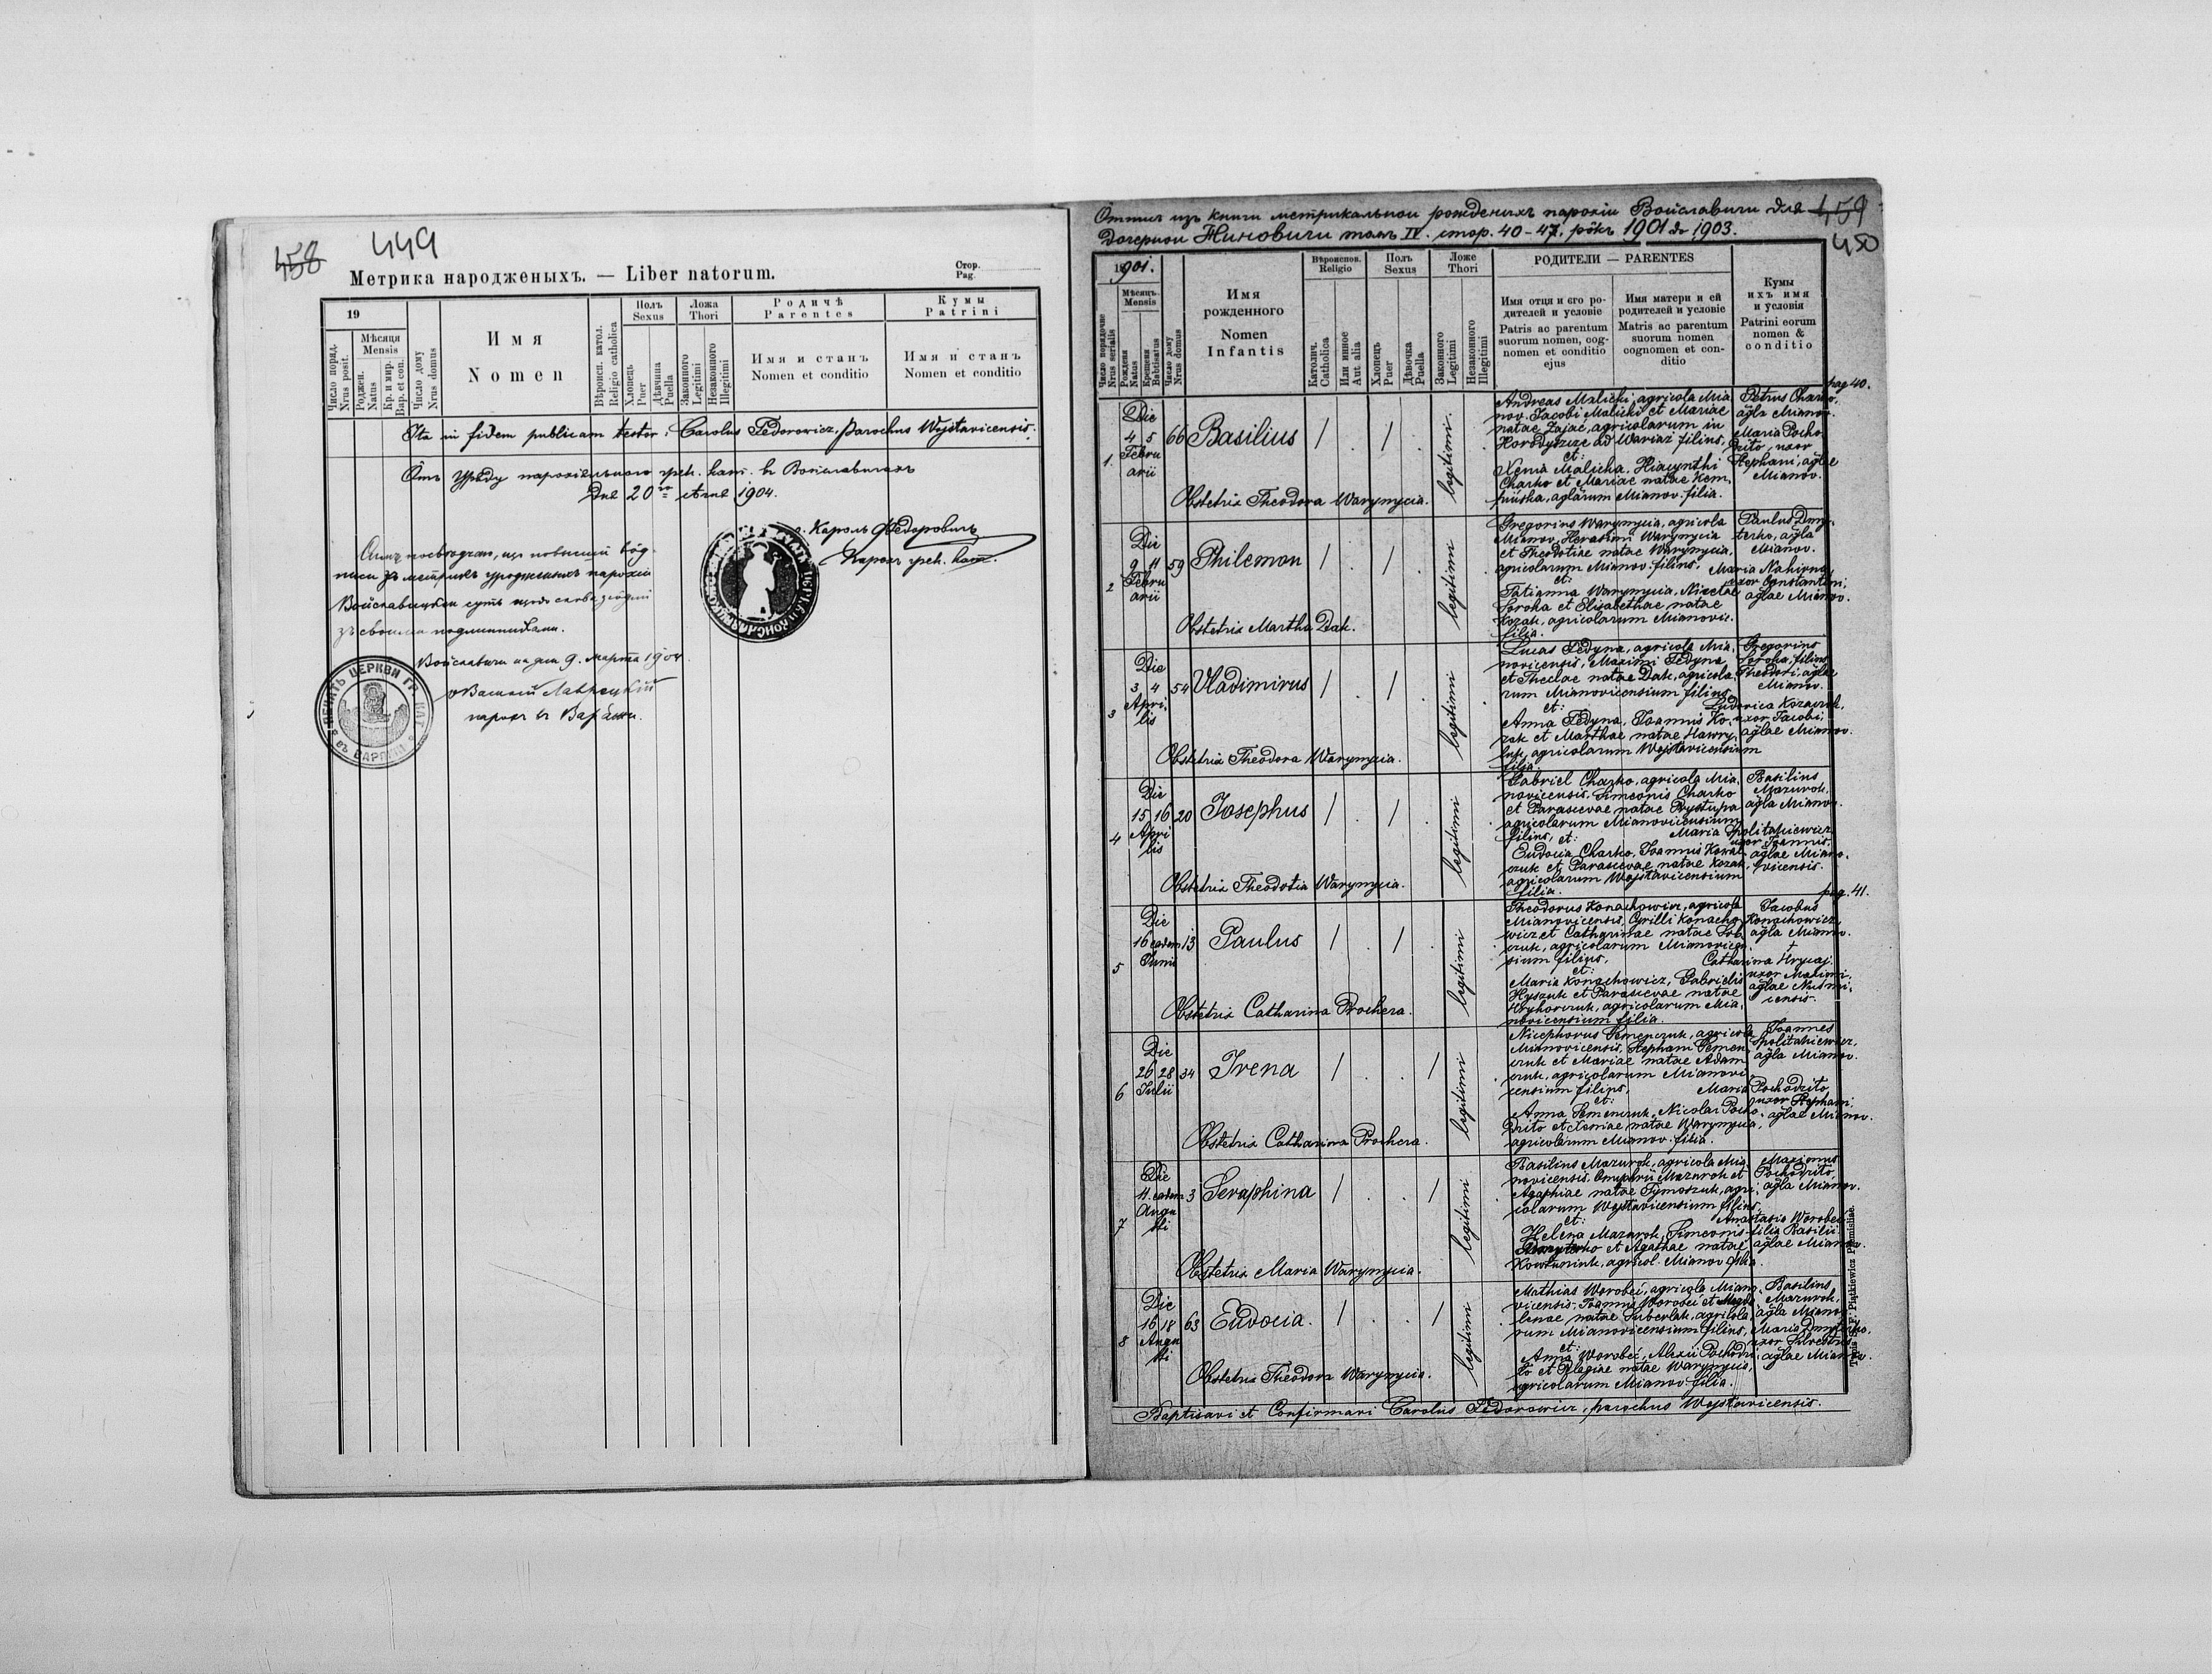 458
449
Метрика народженыхъ. — Liber natorum.
Стор.
Pag.
19
Число поряд.
Nrus posit.
Мѣсяця
Mensis
Роджен.
Natus
Кр. и мир.
Bap. et con.
Число дому
Nrus domus
Имя
Nomen
Вѣроисп. катол.
Religio catholica
Полъ
Sexus
Хлопець
Puer
Дѣвчина
Puella
Ложа
Thori
Законного
Legitimi
Незаконного
Illegitimi
Родичѣ
Parentes
Имя и станъ
Nomen et conditio
Кумы
Patrini
Имя и станъ
Nomen et conditio
Ita in fidem publicam testor: Carolus Fedorowicz, parochus Wojsławicensis.
Отъ Уряду парохіяльного греk. кат. въ Воиславичахъ
Дня 20го 1904.
Кароль Федоровичъ
Парохъ греk. кат.
Воиславицкои суть
зъ своими подлинниками.
Воиславичи дня 9. марта 1904
Василій Лаврецкій
парохъ въ Варяжи.
ПЕЧАТЬ ЦЕРКВИ ГР. КАТ. въ ВАРЯЖИ
Отпись изъ книги метрикальнои рожденыхъ парохіи Воиславичи для
459
дочернои Миновичи томъ IV. стор. 40-47. рôкъ 1901 до 1903.
450
1901.
Число порядочне
Nrus serialis
Мѣсяць
Mensis
Рожденя
Natus
Крещеня
Babtisatus
Число дому
Nrus domus
Имя
рожденного
Nomen
Infantis
Вѣроиспов.
Religio
Католич.
Catholica
Или инное
Aut. alia
Полъ
Sexus
Хлопець
Puer
Дѣвочка
Puella
Ложе
Thori
Законного
Legitimi
Незаконного
Illegitimi
РОДИТЕЛИ — PARENTES
Имя отця и его ро-
дителей и условіе
Patris ac parentum
suorum nomen, cog-
nomen et conditio
ejus
Имя матери и ей
родителей и условіе
Matris ac parentum
suorum nomen
cognomen et con-
ditio
Кумы
ихъ имя
и условія
Patrini eorum
nomen &
conditio
pag. 40.
1.
Die
4 5
Febru
arii
66
Basilius
legitimi
Andreas Malicki, agricola Mia
nov. Jacobi Malicki et Mariae
natae Zając, agricolarum in
Horodyszcze ad Wariaż filius,
et:
Xenia Malicka, Hiacynthi
Charko et Mariae natae
aglarum Mianov. filia.
Petrus Charko,
agla Mianov.
Maria Pocho
drito, uxor
Stephani, aglae
Mianov.
Obstetrix Theodora Warynycia.
2
Die
9 11
Febru
arii
59
Philemon
legitimi
Gregorius Warynycia, agricola
Mianov. Herasimi Warynycia
et Theodotiae natae Warynycia,
agricolarum Mianov. filius,
et:
Tatianna Warynycia, Nicetae
Soroka et Elisabethae natae
Kozak, agricolarum Mianovic.
filia.
Paulus Dmy-
terko, agla
Mianov.
Maria Nahirna,
uxor Constantini,
aglae Mianov.
Obstetrix Martha Dak.
3
Die
3 4
Apri-
lis
54
Vladimirus
legitimi
Lucas Fedyna, agricola Mia-
novicensis, Maximi Fedyna
et Theclae natae Dak, agricola-
rum Mianovicensium filius,
et:
Anna Fedyna, Joannis Ko-
zak et Marthae natae Hawry-
luk, agricolarum Wojsławicensium
filia.
Gregorius
Soroka, filius
Theodori, aglae
Mianov.
Ludovica Kozaczuk,
uxor Jacobi,
aglae Mianov.
Obstetrix Theodora Warynycia.
4
Die
15 16
Apri
lis
20
Josephus
legitimi
Gabriel Charko, agricola Mia-
novicensis, Simeonis Charko
et Parascevae natae Prystupa
agricolarum Mianovicensium
filius, et:
Eudocia Charko, Joannis Kowal-
czuk et Parascevae natae Kozak,
agricolarum Wojsławicensium
filia.
Basilius
Mazurok,
agla Mianov.
Maria Spolitakiewicz
uxor Joannis,
aglae Miano-
vicensis.
Obstetrix Theodotia Warynycia.
pag. 41.
5
Die
16 eadem
Junii
13
Paulus
legitimi
Theodorus Konachowicz, agricola
Mianovicensis, Cyrilli Konacho-
wicz et Catharinae natae
czuk, agricolarum Mianovicen-
sium filius,
et:
Maria Konachowicz, Gabrielis
Hyszuk et Parascevae natae
Hryhorczuk, agricolarum Mia-
novicensium filia.
Jacobus
Konachowicz,
agla Mianov.
Catharina Hrycaj
uxor Maximi,
aglae
censis.
Obstetrix Catharina Prochera.
6
Die
26 28
Julii
34
Irena
legitimi
Nicephorus Semenczuk, agricola
Mianovicensis, Stephani Semen-
czuk et Mariae natae Adam
czuk, agricolarum Mianovi
censium filius,
et:
Anna Semenczuk, Nicolai Pocho-
drito et Xeniae natae Warynycia,
agricolarum Mianov. filia.
Joannes
Spolitakiewicz,
agla Mianov.
Maria Pochodrito,
uxor Stephani,
aglae Mianov.
Obstetrix Catharina Prochera.
7
Die
11. eadem
Augu
sti
3
Seraphina
legitimi
Basilius Mazurok, agricola Mia-
novicensis, Onuphrii Mazurok et
Agaphiae natae Tymoszuk, agri-
colarum Wojsławicensium filius,
et:
Helena Mazurok, Simeonis
Dmyterko et Agathae natae
agricol. Mianov. filia.
Maximus
Pochodrito
agla Mianov.
Anastasia Worobec
filia Basilii
aglae Mianov.
Obstetrix Maria Warynycia.
8
Die
16 18
Augu
sti
63
Eudocia.
legitimi
Mathias Worobeć, agricola Miano-
vicensis, Joannis Worobeć et Magda-
lenae natae Suberlak, agricola-
rum Mianovicensium filius,
et:
Anna Worobeć, Alexii Pochodri-
to et Pelagiae natae Warynycia,
agricolarum Mianov. filia.
Basilius
Mazurok,
agla Mianov.
Maria Dmyterko,
uxor Silvestris,
aglae Mianov.
Obstetrix Theodora Warynycia.
Baptisavi et Confirmavi Carolus Fedorowicz, parochus Wojsławicensis.
Typis S. F. Piątkiewicz Premisliae.